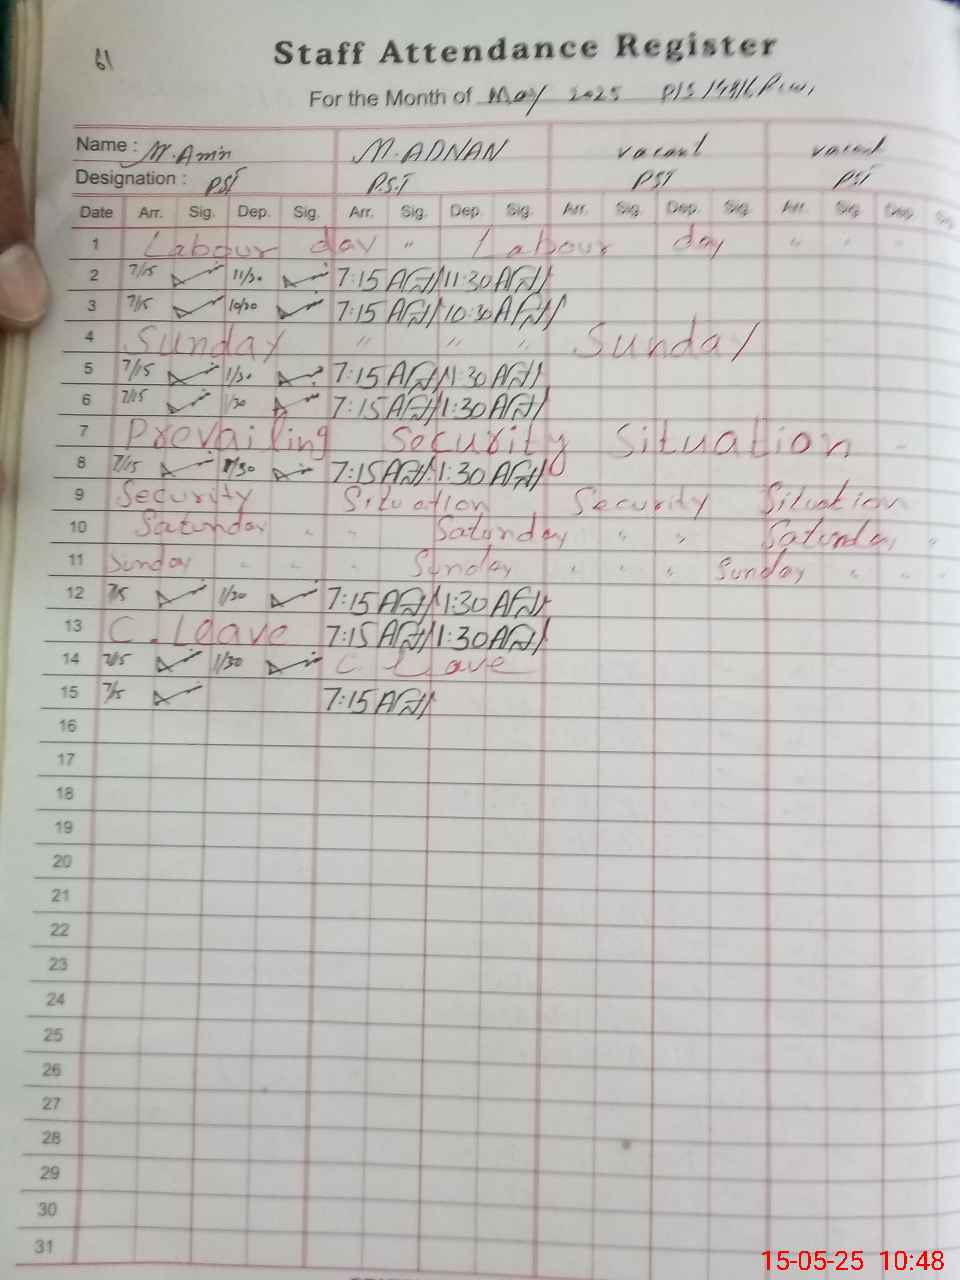 61
Staff Attendance Register
For the Month of May 2025
Name : M.Amin M.ADNAN vacant vacant
Designation : PST P.S.T PST PST
Date Arr. Sig. Dep. Sig. Arr. Sig. Dep. Sig. Arr. Sig. Dep. Sig. Arr. Sig. Dep. Sig.
1 Labour day " Labour day " " "
2 7/15 11/30 7:15 11:30
3 7/15 10/30 7:15 10:30
4 Sunday " " " Sunday
5 7/15 1/30 7:15 11:30
6 7/15 1/30 7:15 1:30
7 Prevailing Security Situation
8 7/15 1/30 7:15 1:30
9 Security Situation Security Situation
10 Saturday " " Saturday " " Saturday "
11 Sunday " " " Sunday " " " Sunday " " "
12 7/15 1/30 7:15 1:30
13 C. Leave 7:15 1:30
14 7/15 1/30 C. Leave
15 7/15 7:15
16
17
18
19
20
21
22
23
24
25
26
27
28
29
30
31
15-05-25 10:48